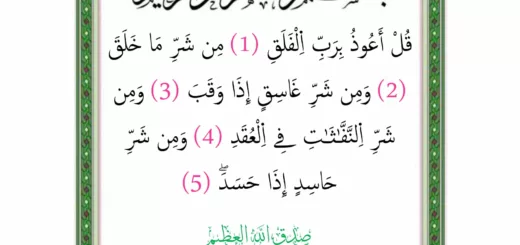 قُلْ أَعُوذُ بِرَبِّ اِ۬لْفَلَقِ (1) مِن شَرِّ مَا خَلَقَ
(2) وَمِن شَرِّ غَاسِقٍ إِذَا وَقَبَ (3) وَمِن
شَرِّ اِ۬لنَّفَّٰثَٰتِ فِے اِ۬لْعُقَدِ (4) وَمِن شَرِّ
حَاسِدٍ إِذَا حَسَدَۖ (5)
صَدَقَ اللهُ العَظِيم